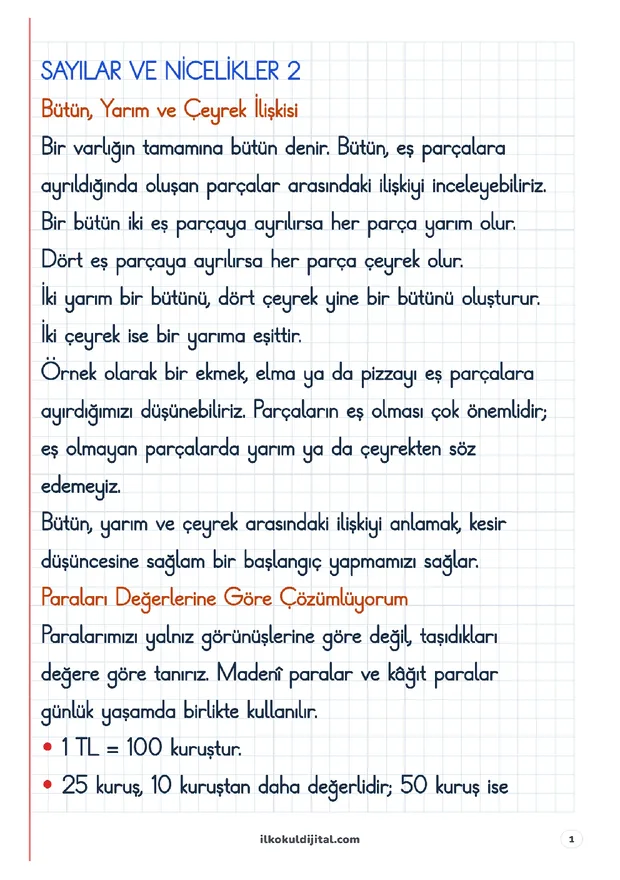 SAYILAR VE NİCELİKLER 2
Bütün, Yarım ve Çeyrek İlişkisi
Bir varlığın tamamına bütün denir. Bütün, eş parçalara
ayrıldığında oluşan parçalar arasındaki ilişkiyi inceleyebiliriz.
Bir bütün iki eş parçaya ayrılırsa her parça yarım olur.
Dört eş parçaya ayrılırsa her parça çeyrek olur.
İki yarım bir bütünü, dört çeyrek yine bir bütünü oluşturur.
İki çeyrek ise bir yarıma eşittir.
Örnek olarak bir ekmek, elma ya da pizzayı eş parçalara
ayırdığımızı düşünebiliriz. Parçaların eş olması çok önemlidir;
eş olmayan parçalarda yarım ya da çeyrekten söz
edemeyiz.
Bütün, yarım ve çeyrek arasındaki ilişkiyi anlamak, kesir
düşüncesine sağlam bir başlangıç yapmamızı sağlar.
Paraları Değerlerine Göre Çözümlüyorum
Paralarımızı yalnız görünüşlerine göre değil, taşıdıkları
değere göre tanırız. Madenî paralar ve kâğıt paralar
günlük yaşamda birlikte kullanılır.
• 1 TL = 100 kuruştur.
• 25 kuruş, 10 kuruştan daha değerlidir; 50 kuruş ise
ilkokuldijital.com
1